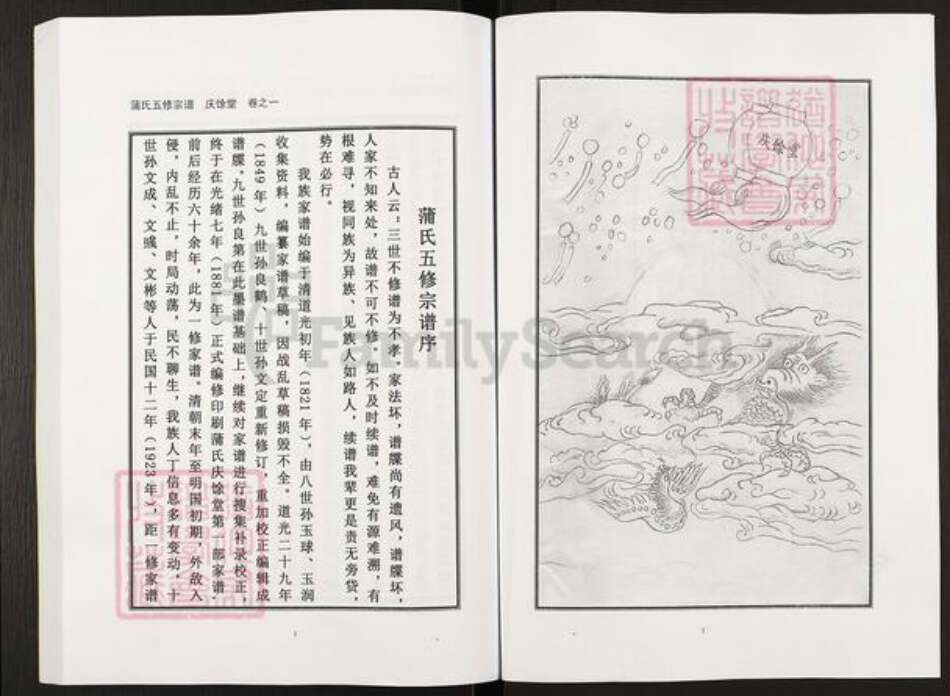 蒲氏五修宗谱　庆馀堂　卷之一
蒲氏五修宗谱序
古人云：三世不修谱为不孝。家法坏，谱牒尚有遗风，谱牒坏，
人家不知来处，故谱不可不修。如不及时续谱，难免有源难溯，有
根难寻，视同族为异族、见族人如路人，续谱我辈更是责无旁贷，
势在必行。
我族家谱始编于清道光初年（1821年），由八世孙玉球、玉润
收集资料，编纂家谱草稿，因战乱草稿损毁不全。道光二十九年
（1849年）九世孙良鹤、十世孙文定重新修订，重加校正编辑成
谱牒。九世孙良第在此墨谱基础上，继续对家谱进行搜集补录校正，
终于在光绪七年（1881年）正式编修印刷蒲氏庆馀堂第一部家谱。
前后经历六十余年，此为一修家谱。清朝末年至明国初期，外敌入
侵，内乱不止，时局动荡，民不聊生，我族人丁信息多有变动，十
世孙文成、文彧、文彬等人于民国十二年（1923年），距一修家谱
1
庆馀堂
1
FamilySearch